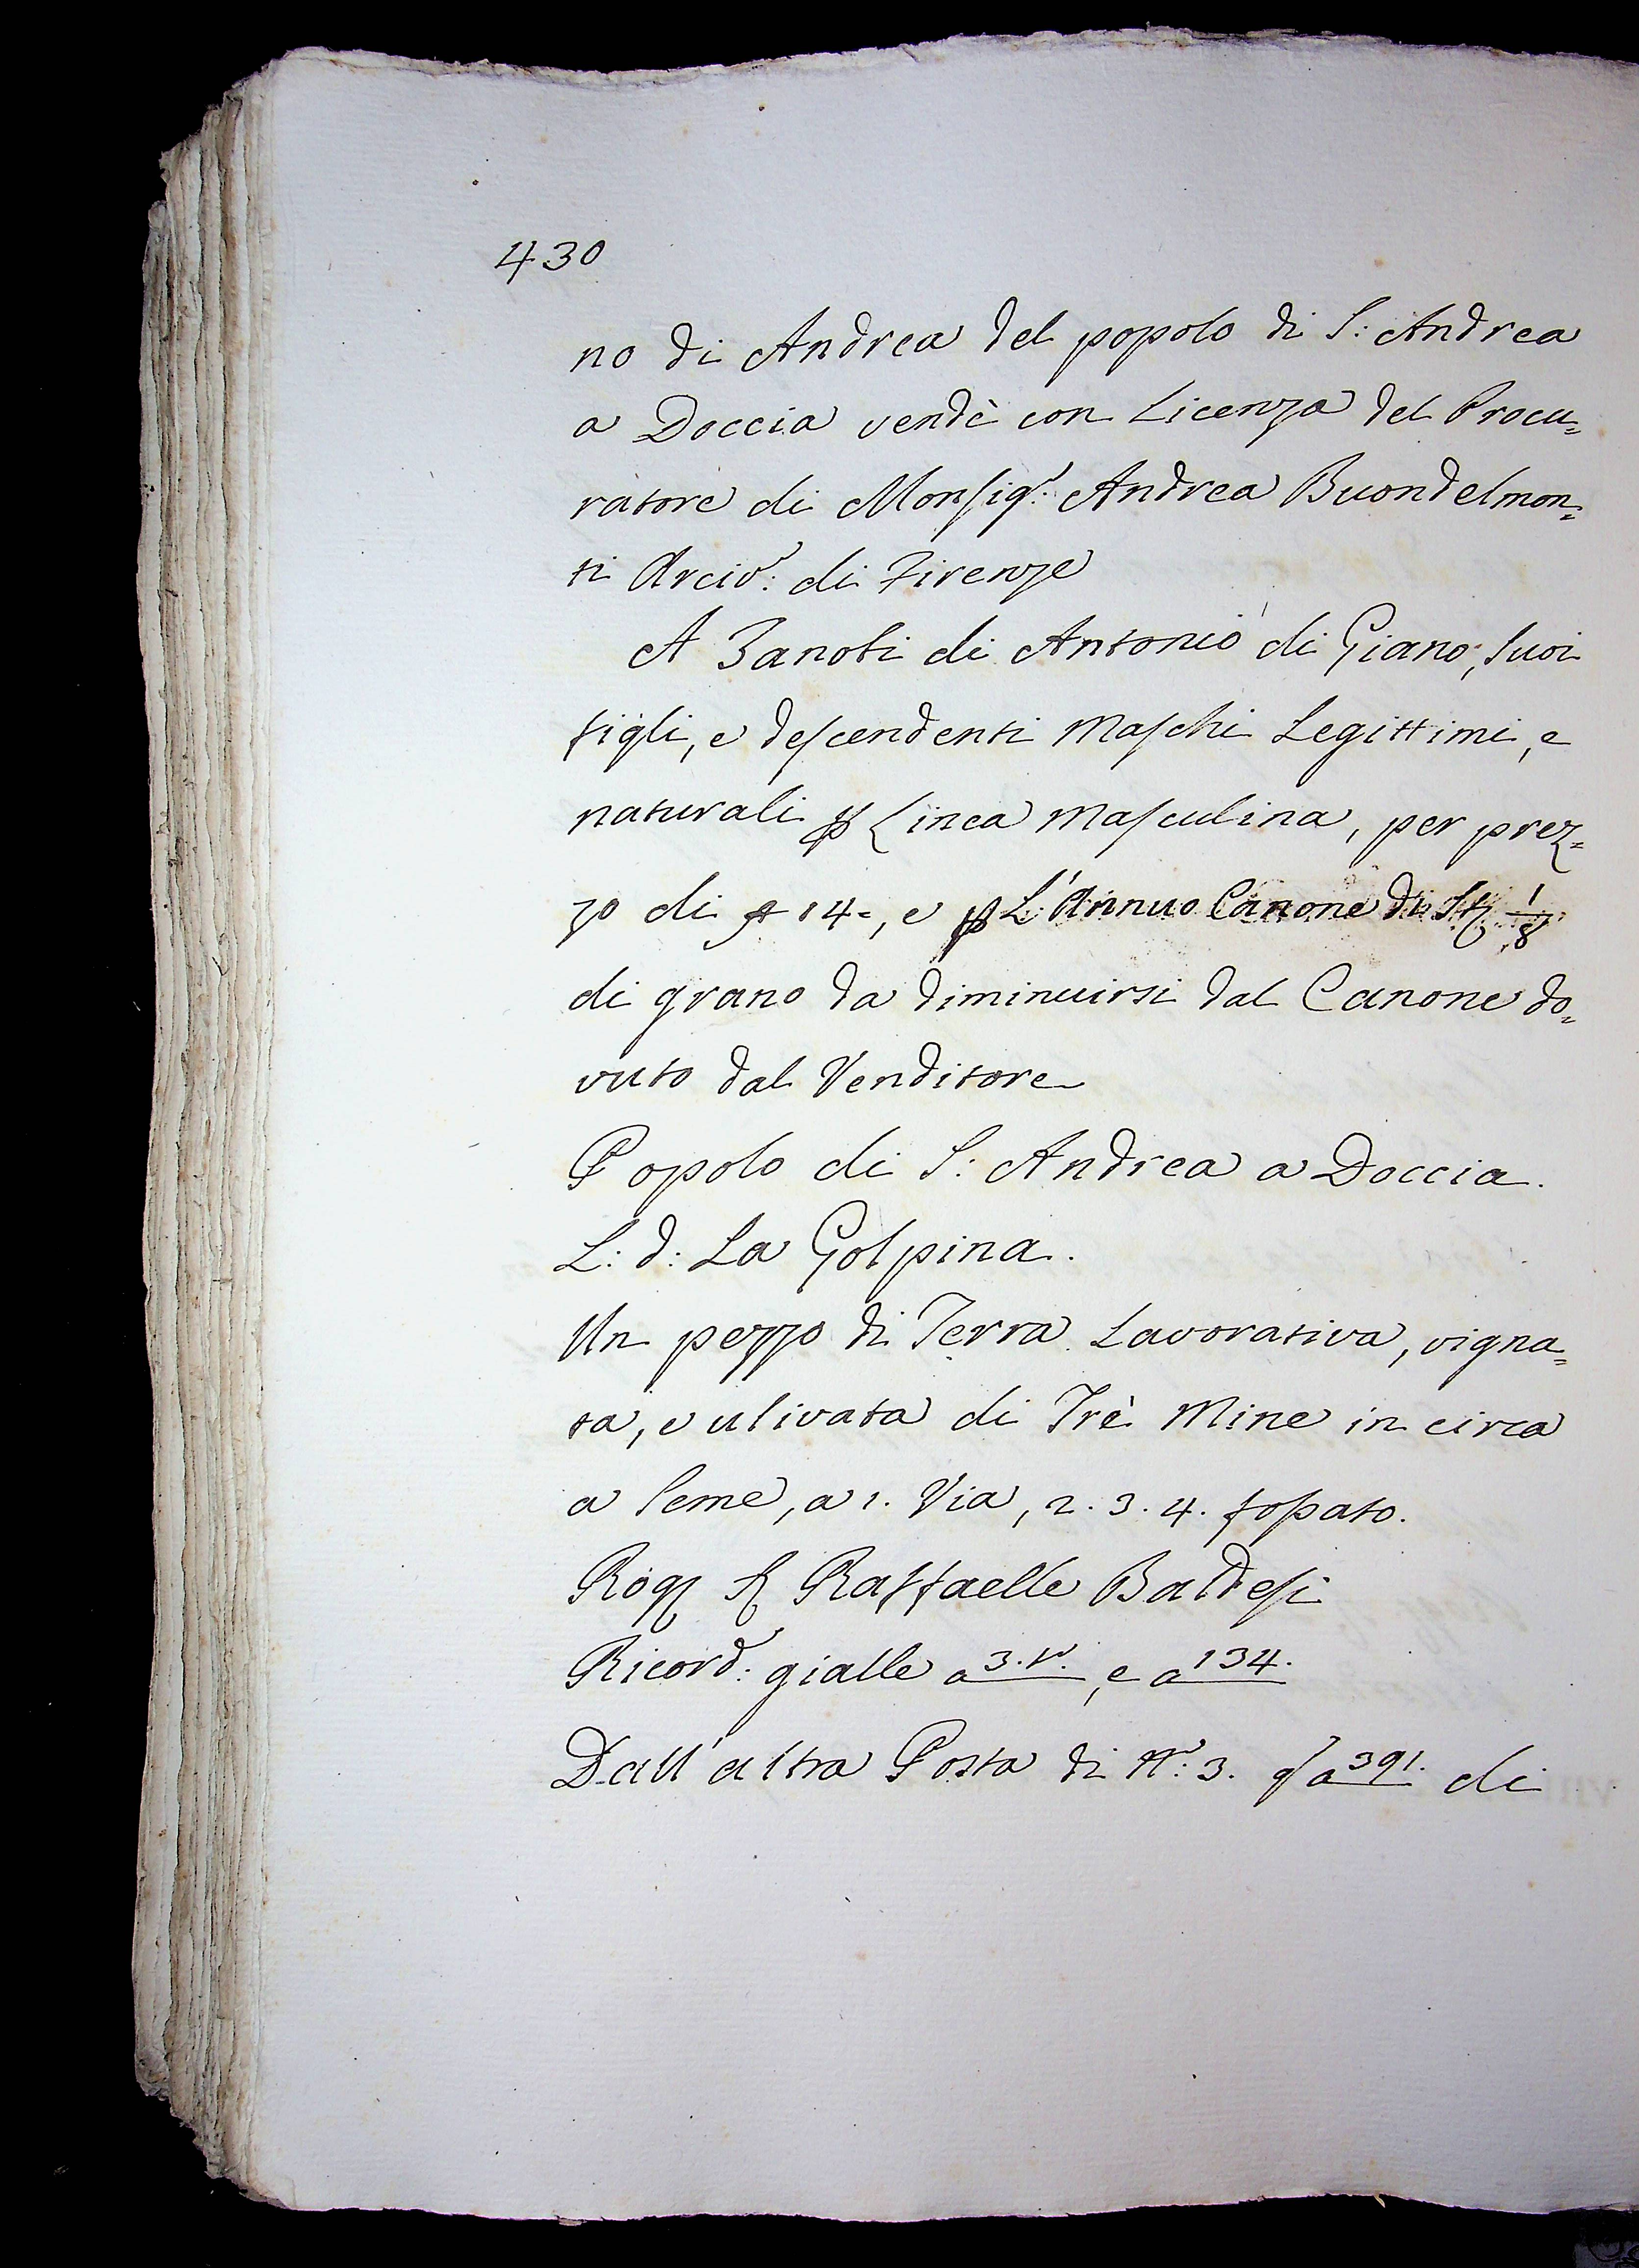 430
no di Andrea del popolo di S: Andrea
a Doccia vendè con Licenza del Procu=
ratore di Monsig.r: Andrea Buondelmon=
ti Arciv.o: di Firenze
A Zanobi di Antonio di Giano, suoi
figli, e descendenti Maschi Legittimi, e
naturali p Linea Masculina, per prez=
zo di 14=, e p L'Annuo Canone di St 1/8
di grano da diminuirsi dal Canone do=
vuto dal Venditore
Popolo di S: Andrea a Doccia.
L: d: La Golpina.
Un pezzo di Terra Lavorativa, vigna=
ta, e ulivata di Trè Mine in circa
a Seme, a 1. Via, 2. 3. 4. fossato.
Rog S Raffaelle Baldesi
Ricord: gialle a 3. v., e a 134.
Dall'altra Posta di N.o: 3. q a 391. di